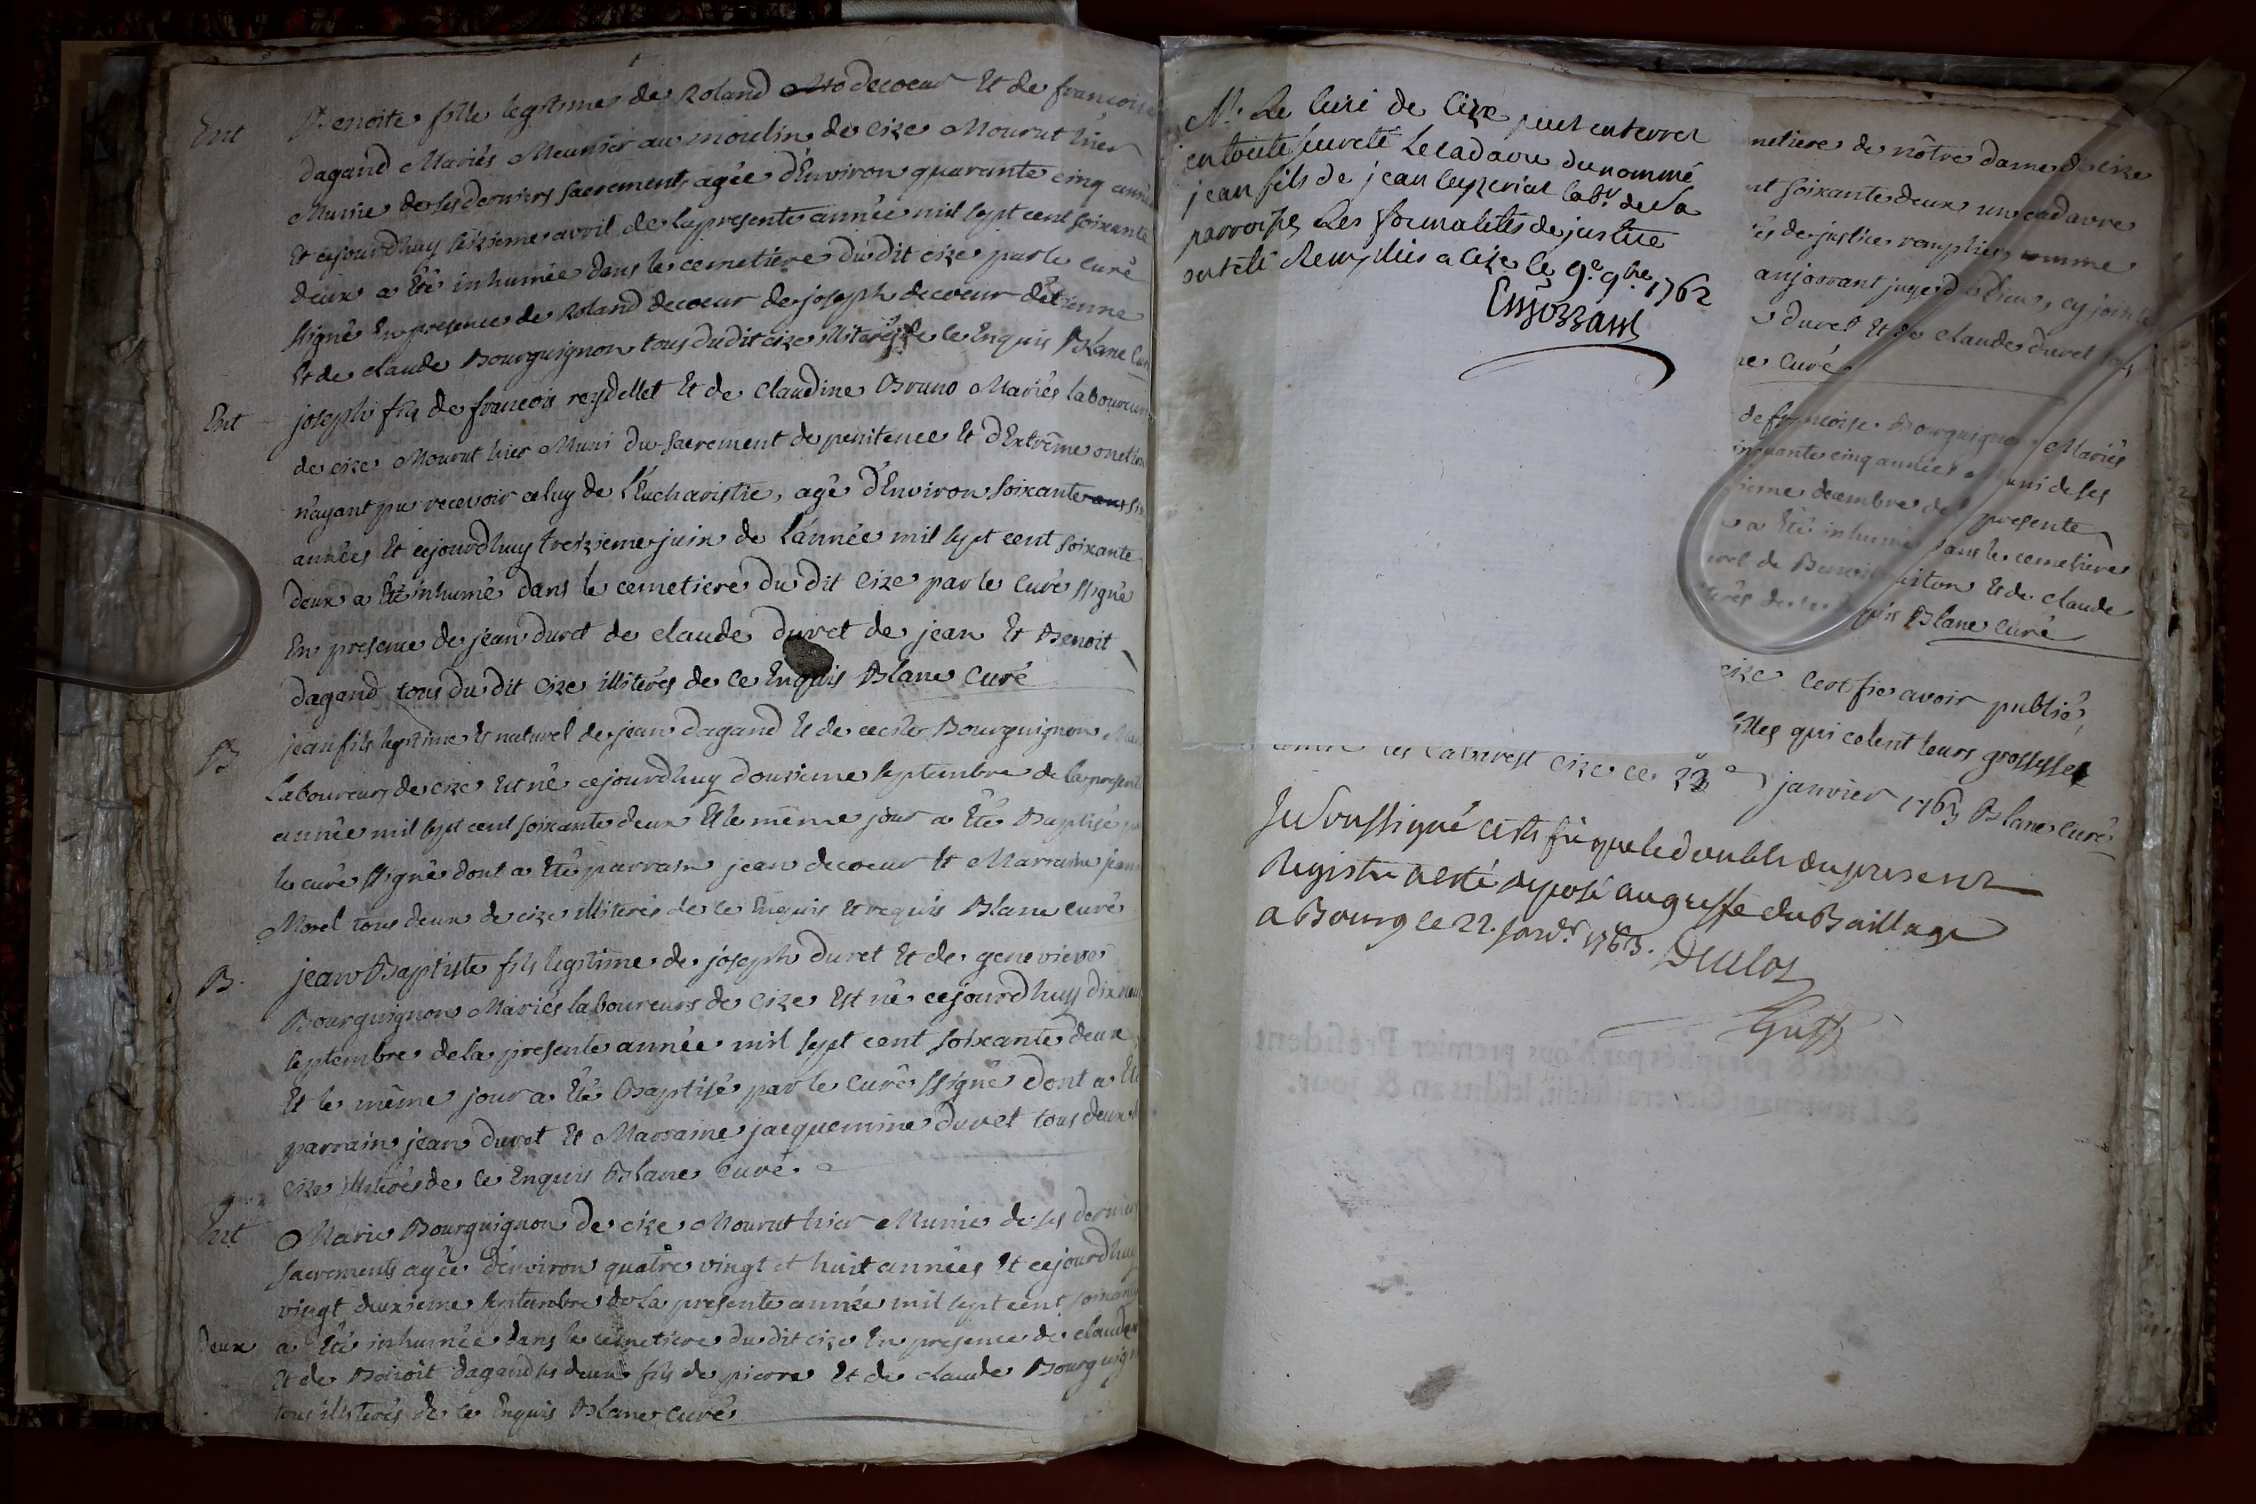 Ent
Benoite fille legitime de Roland decoeur Et de francoise
dagand Mariés Meunier au moulin de Cize Mourut hier
Munie de ses derniers sacrements agée d'Environ quarante cinq anné
Et cejourdhuy seizieme avril de la presente année mil sept cent soixante
deux a Eté inhumée dans le cemetiere du dit cize par le curé
ssigné En presence de Roland decoeur de joseph decoeur d'etienne
Et de claude Bourguignon tous du dit cize illiterés de ce Enquis Blanc Curé
Ent
joseph fils de francois reydellet Et de Claudine Bruno Mariés laboureurs
de cize Mourut hier Muni du sacrement de penitence Et d'Extrême onction
n'ayant pu recevoir celuy de l'Eucharistie, agé d'Environ soixante ans six
années Et cejourdhuy treizieme juin de l'année mil sept cent soixante
deux a Eté inhumé dans le cemetiere du dit Cize par le Curé ssigné
En presence de jean duret de claude duret de jean Et Benoit
dagand tous du dit Cize illiterés de ce Enquis Blanc Curé
B
jean fils legitime Et naturel de jean dagand Et de cecile Bourguignon
Laboureurs de cize Est né cejourdhuy douzieme septembre de la presente
année mil sept cent soixante deux Et le même jour a Eté Baptisé
le curé ssigné dont a Eté parrain jean decoeur Et Marraine
Morel tous deux de cize illiterés de ce Enquis Et requis Blanc curé
B.
jean Baptiste fils legitime de joseph duret Et de genevieve
Bourguignon Mariés laboureurs de Cize Est né cejourdhuy dix neuf
septembre de la presente année mil sept cent soixante deux
Et le même jour a Eté Baptisé par le Curé ssigné dont a Eté
parrain jean duret Et Marraine jacquemine duret tous deux
Cize illiterés de ce Enquis Blanc Curé.
Ent
Marie Bourguignon de cize Mourut hier Munie de ses derniers
sacrements agée d'environ quatre vingt et huit années Et cejourdhuy
vingt deuxieme septembre de la presente année mil sept cent soixante
Deux a Eté inhumée dans le cemetiere du dit cize En presence de claude
Et de Benoit dagand les deux fils de pierre Et de claude Bourguign
tous illiterés de ce Enquis Blanc Curé
Mr. Le Curé de Cize peut enterrer
en toute sureté Le cadavre du nommé
jean fils de jean leyzeriat labr. de la
parroisse Les formalités de justice
ont eté Remplies a Cize le 9e. 9bre. 1762
metiere de nôtre dame de cize
nt soixante deux un cadavre
és de justice remplies comme
cy joint
duret Et de claude duret
Curé
de francoise Bourguignon Mariés
inquante cinq années muni de ses
ieme decembre de presente
a Eté inhumé dans le cemetiere
de Benoit Et de claude
Blanc curé
cize Certifie avoir publié
filles qui celent leurs grossesses
Cize ce 22e janvier 1763 Blanc Curé
Je soussigné certifie que le double du present
Registre a eté deposé au greffe du Baillage
a Bourg ce 22. janvr. 1763.
premier President